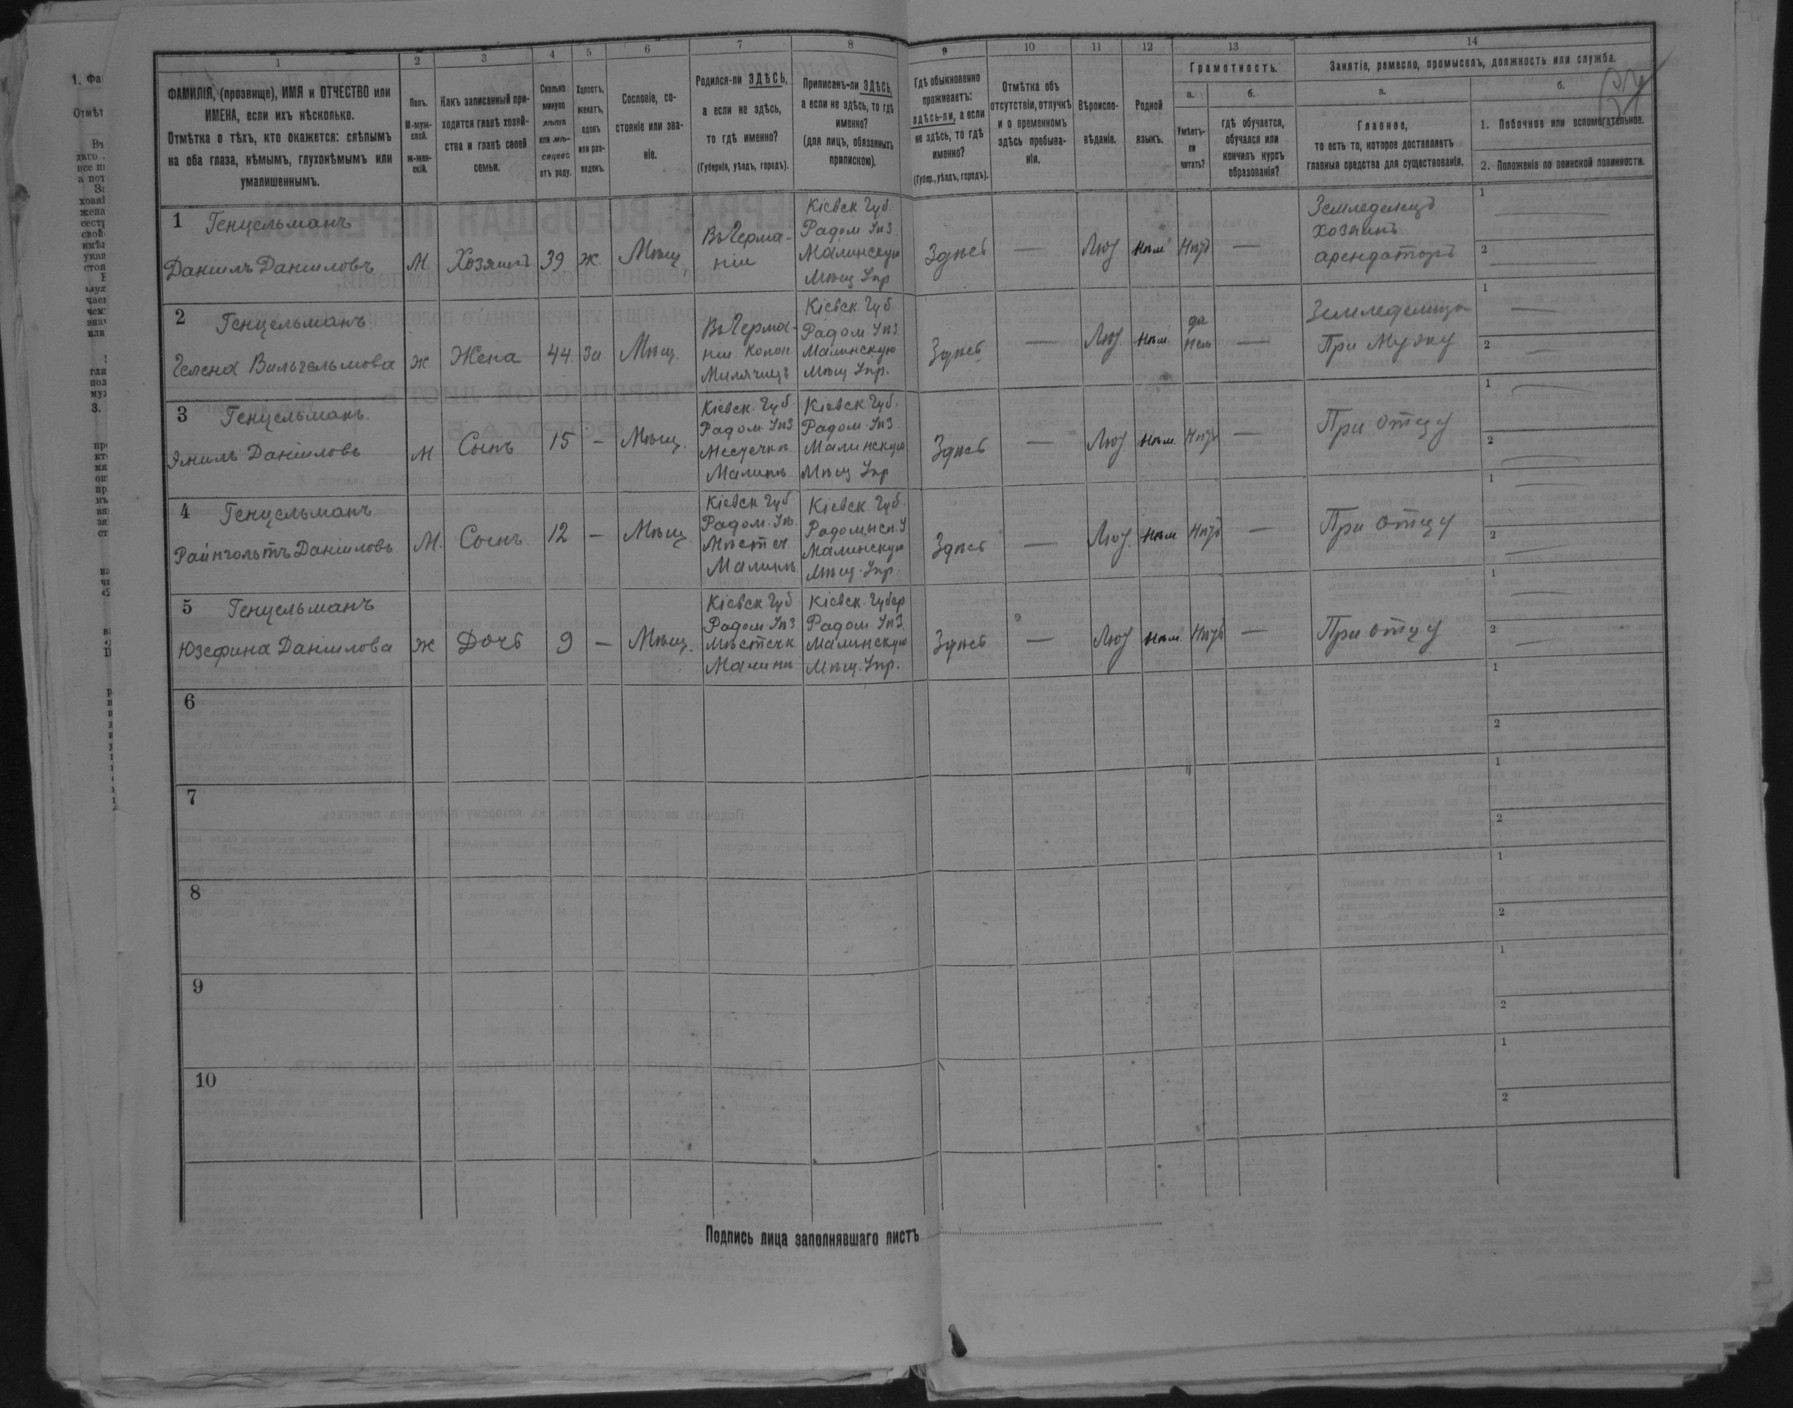 1 2 3 4 5 6 7 8 9 10 11 12 13 14
ФАМИЛІЯ, (прозвище), ИМЯ и ОТЧЕСТВО или
ИМЕНА, если ихъ нѣсколько.
Отмѣтка о тѣхъ, кто окажется: слѣпымъ
на оба глаза, нѣмымъ, глухонѣмымъ или
умалишеннымъ.
Полъ.
М-муж-
ской.
ж-жен-
скій.
Какъ записанный при-
ходится главѣ хозяй-
ства и главѣ своей
семьи.
Сколько
минуло
лѣтъ
или мѣ-
сяцевъ
отъ роду.
Холостъ,
женатъ,
вдовъ
или раз-
веденъ.
Сословіе, со-
стояніе или зва-
ніе.
Родился-ли ЗДѢСЬ,
а если не здѣсь,
то гдѣ именно?
(Губернія, уѣздъ, городъ).
Приписанъ-ли ЗДѢСЬ,
а если не здѣсь, то гдѣ
именно?
(для лицъ, обязанныхъ
припискою).
Гдѣ обыкновенно
проживаетъ:
здѣсь-ли, а если
не здѣсь, то гдѣ
именно?
(Губер., уѣздъ, городъ).
Отмѣтка объ
отсутствіи, отлучкѣ
и о временномъ
здѣсь пребыва-
ніи.
Вѣроиспо-
вѣданіе.
Родной
языкъ.
Грамотность.
а.
Умѣетъ-
ли
читать?
б.
гдѣ обучается,
обучался или
кончилъ курсъ
образованія?
Занятіе, ремесло, промыселъ, должность или служба.
а.
Главное,
то есть то, которое доставляетъ
главныя средства для существованія.
б.
1. Побочное или вспомогательное.
2. Положеніе по воинской повинности.
1 Генцельманъ
Даніилъ Даніиловъ
М
Хозяинъ
39
ж
Мѣщ.
Въ Герма-
ніи
Кіевск Губ.
Радом Уѣз
Малинскую
Мѣщ Упр
Здѣсь
—
Лют
нѣм
Нѣтъ
—
Земледелецъ
хозяинъ
арендаторъ
1
2
2 Генцельманъ
Гелена Вильгельмова
ж
Жена
44
За
Мѣщ.
Въ Герма-
ніи Колон.
Кіевск Губ.
Радом Уѣз
Малинскую
Мѣщ Упр.
Здѣсь
—
Лют
нѣм.
да
—
Земледелица
При Мужу
1
2
3 Генцельманъ
Эмиль Даніиловъ
М
Сынъ
15
—
Мѣщ.
Кіевск. Губ.
Радом Уѣз
Малинъ
Кіевск Губ.
Радом. Уѣз
Малинскую
Мѣщ Упр
Здѣсь
—
Лют
нѣм.
Нѣтъ
—
При отцу
1
2
4 Генцельманъ
Райнгольтъ Даніиловъ
М.
Сынъ
12
—
Мѣщ
Кіевск Губ
Радом. Уѣ.
Мѣстеч
Малинъ
Кіевск. Губ.
Радомысл. У
Малинскую
Мѣщ. Упр.
Здѣсь
—
Лют.
нѣм
Нѣтъ
—
При отцу
1
2
5 Генцельманъ
Юзефина Даніилова
ж
Дочь
9
—
Мѣщ.
Кіевск Губ
Радом. Уѣз
Мѣстечк
Малинъ
Кіевск. Губер
Радом. Уѣз.
Малинскую
Мѣщ. Упр.
Здѣсь
—
Лют
нѣм.
Нѣтъ
—
При отцу
1
2
6
1
2
7
1
2
8
1
2
9
1
2
10
1
2
Подпись лица заполнявшаго листъ